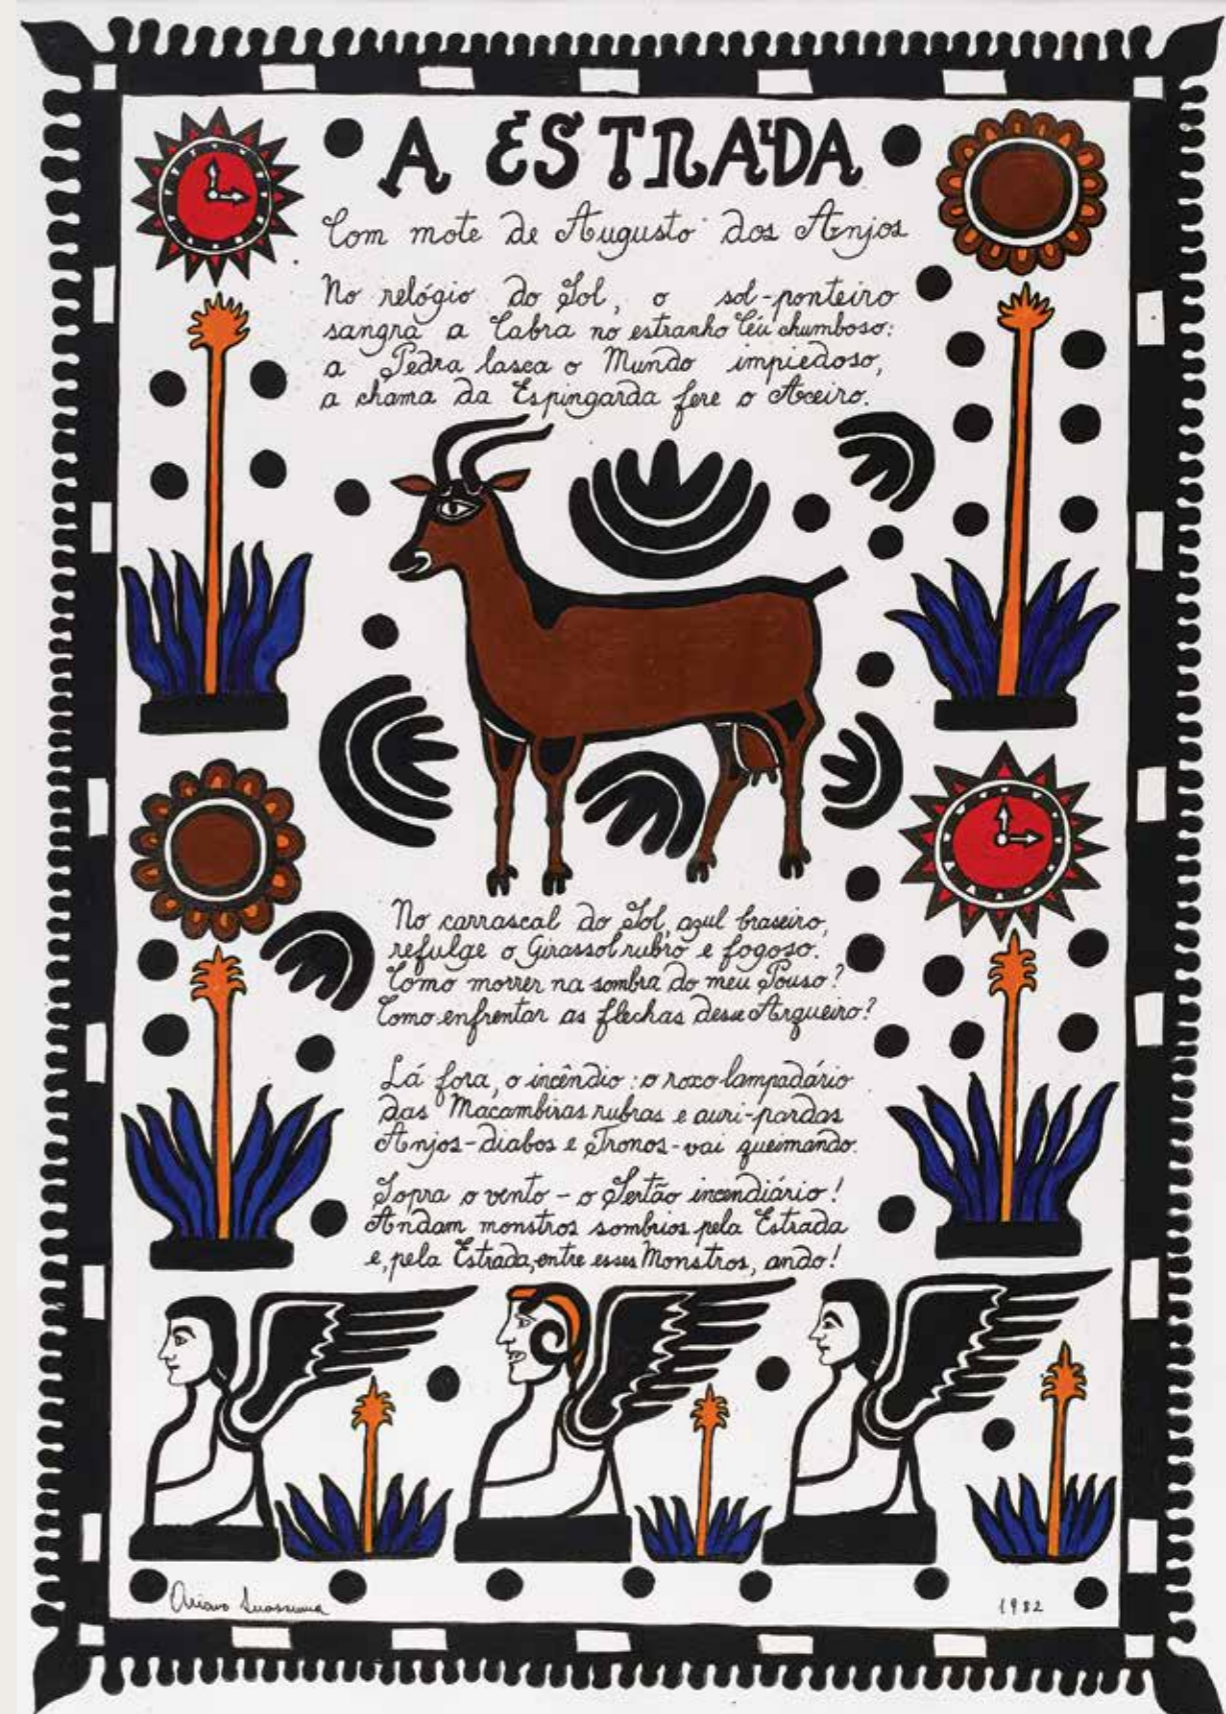 A ESTRADA
Com mote de Augusto dos Anjos
No relógio do Sol, o sol-ponteiro
sangra a Cabra no estranho Céu chumboso:
a Pedra lasca o Mundo impiedoso,
a chama da Espingarda fere o Aceiro.
No carrascal do Sol, azul braseiro,
refulge o Girassol rubro e fogoso.
Como morrer na sombra do meu Pouso?
Como enfrentar as flechas desse Arqueiro?
Lá fora, o incêndio: o roxo lampadário
das Macambiras rubras e auri-pardas
Anjos-diabos e Tronos-vai queimando.
Sopra o vento - o Sertão incendiário!
Andam monstros sombrios pela Estrada
e, pela Estrada, entre esses Monstros, ando!
Ariano Suassuna
1982